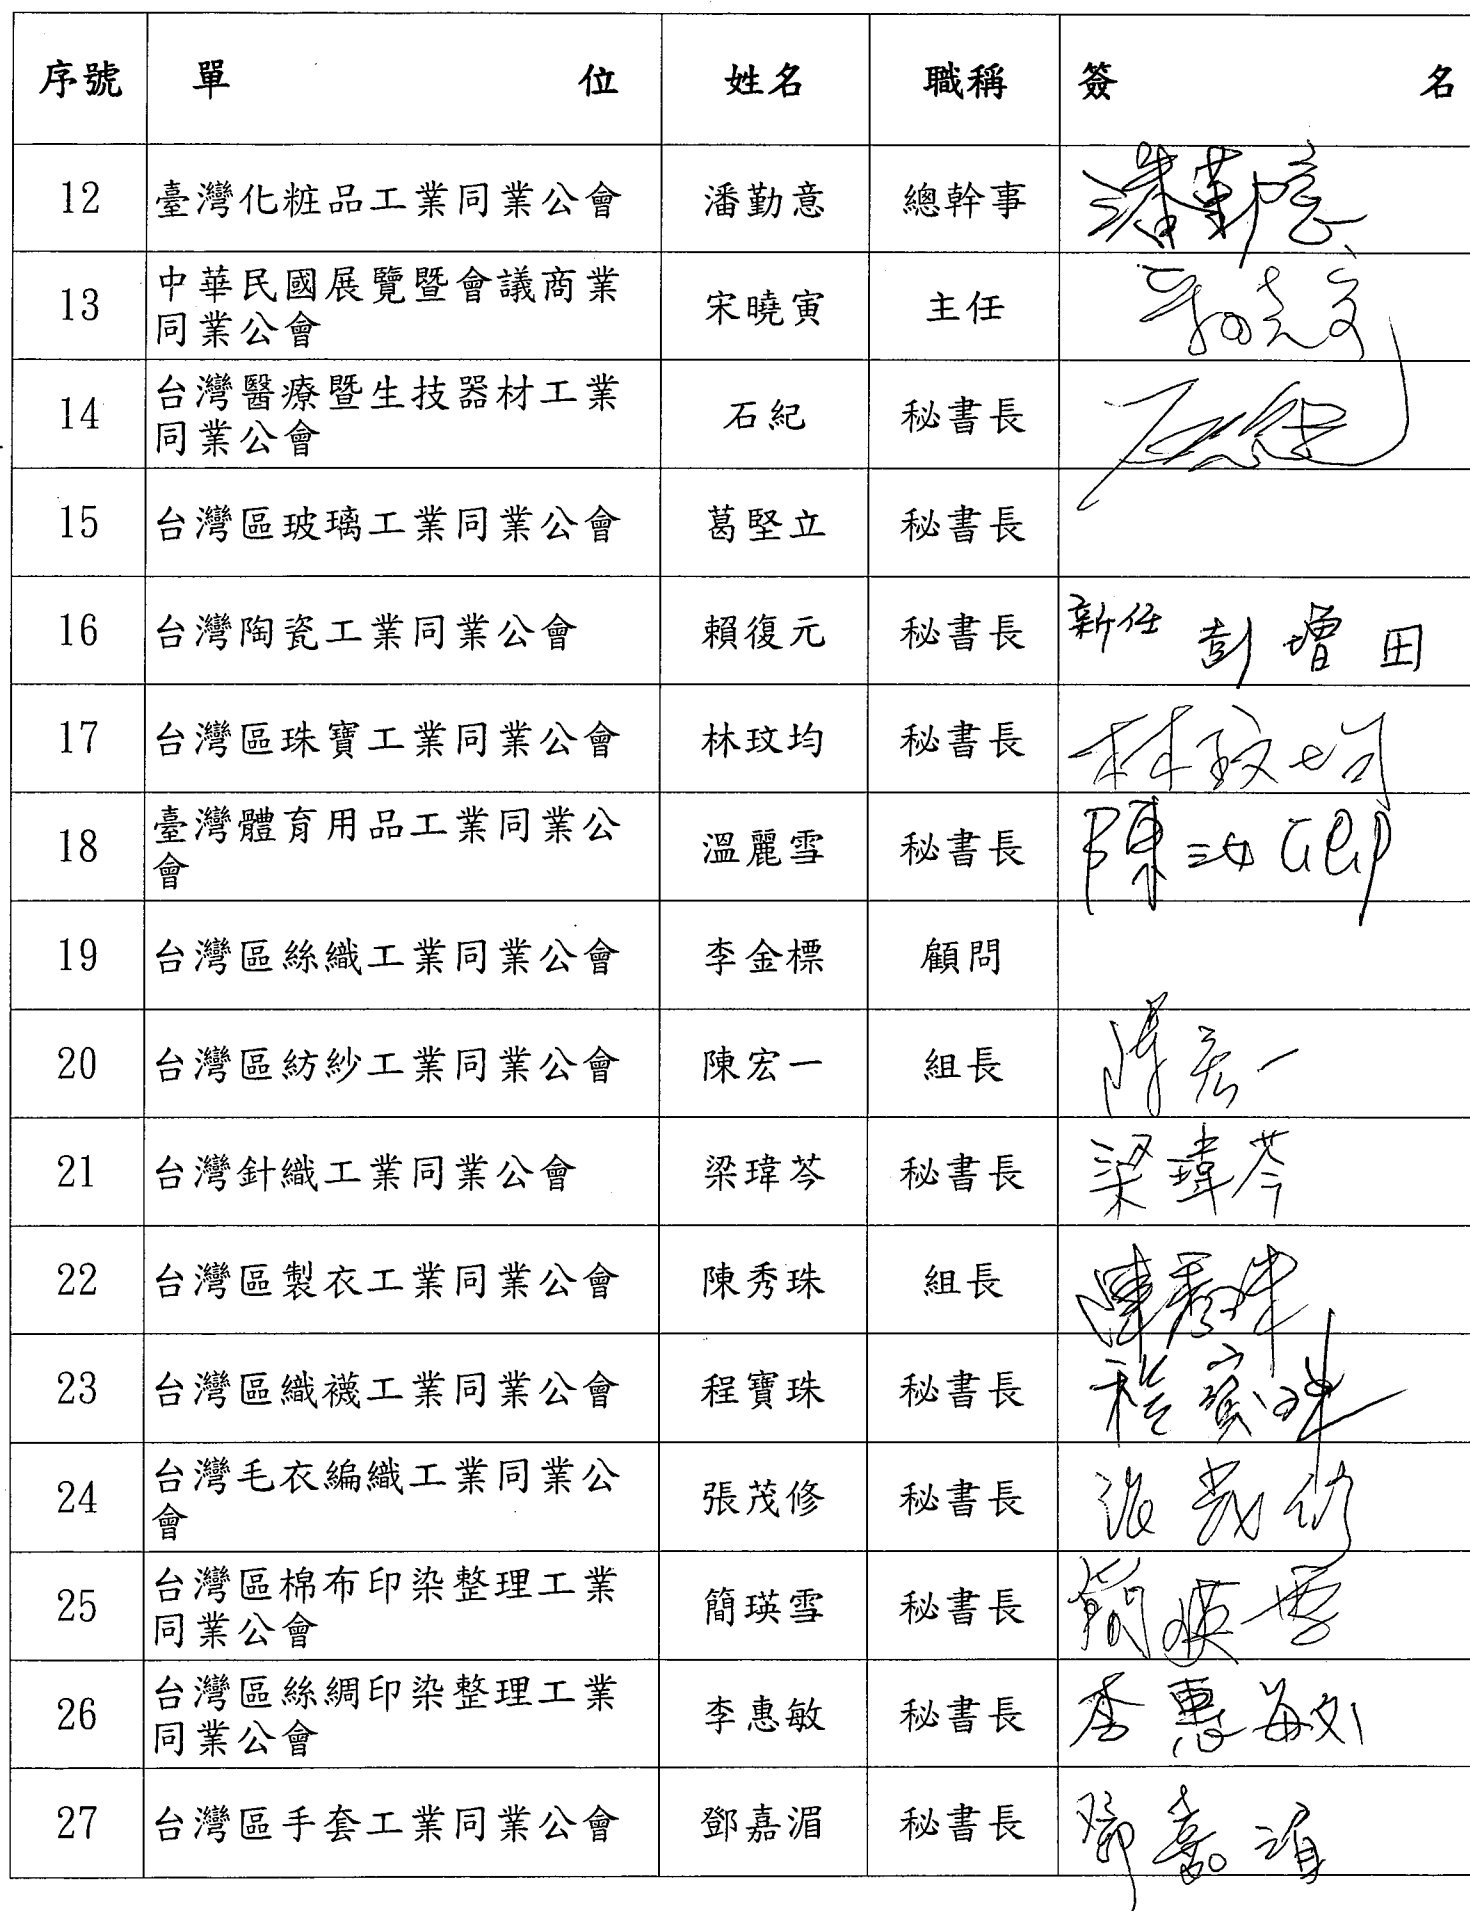 序號 單位 姓名 職稱 簽名
12 臺灣化粧品工業同業公會 潘勤意 總幹事 潘勤意
中華民國展覽暨會議商業
13 同業公會 宋曉寅 主任
台灣醫療暨生技器材工業
14 同業公會 石紀 秘書長
15 台灣區玻璃工業同業公會 葛堅立 秘書長
16 台灣陶瓷工業同業公會 賴復元 秘書長 新任 彭增田
17 台灣區珠寶工業同業公會 林玟均 秘書長 林玟均
臺灣體育用品工業同業公
18 會 溫麗雪 秘書長 陳
19 台灣區絲織工業同業公會 李金標 顧問
20 台灣區紡紗工業同業公會 陳宏一 組長 陳宏一
21 台灣針織工業同業公會 梁瑋芩 秘書長 梁瑋芩
22 台灣區製衣工業同業公會 陳秀珠 組長 陳秀珠
23 台灣區織襪工業同業公會 程寶珠 秘書長 程寶珠
台灣毛衣編織工業同業公
24 會 張茂修 秘書長 張茂修
台灣區棉布印染整理工業
25 同業公會 簡瑛雪 秘書長 簡瑛雪
台灣區絲綢印染整理工業
26 同業公會 李惠敏 秘書長 李惠敏
27 台灣區手套工業同業公會 鄧嘉湄 秘書長 鄧嘉湄